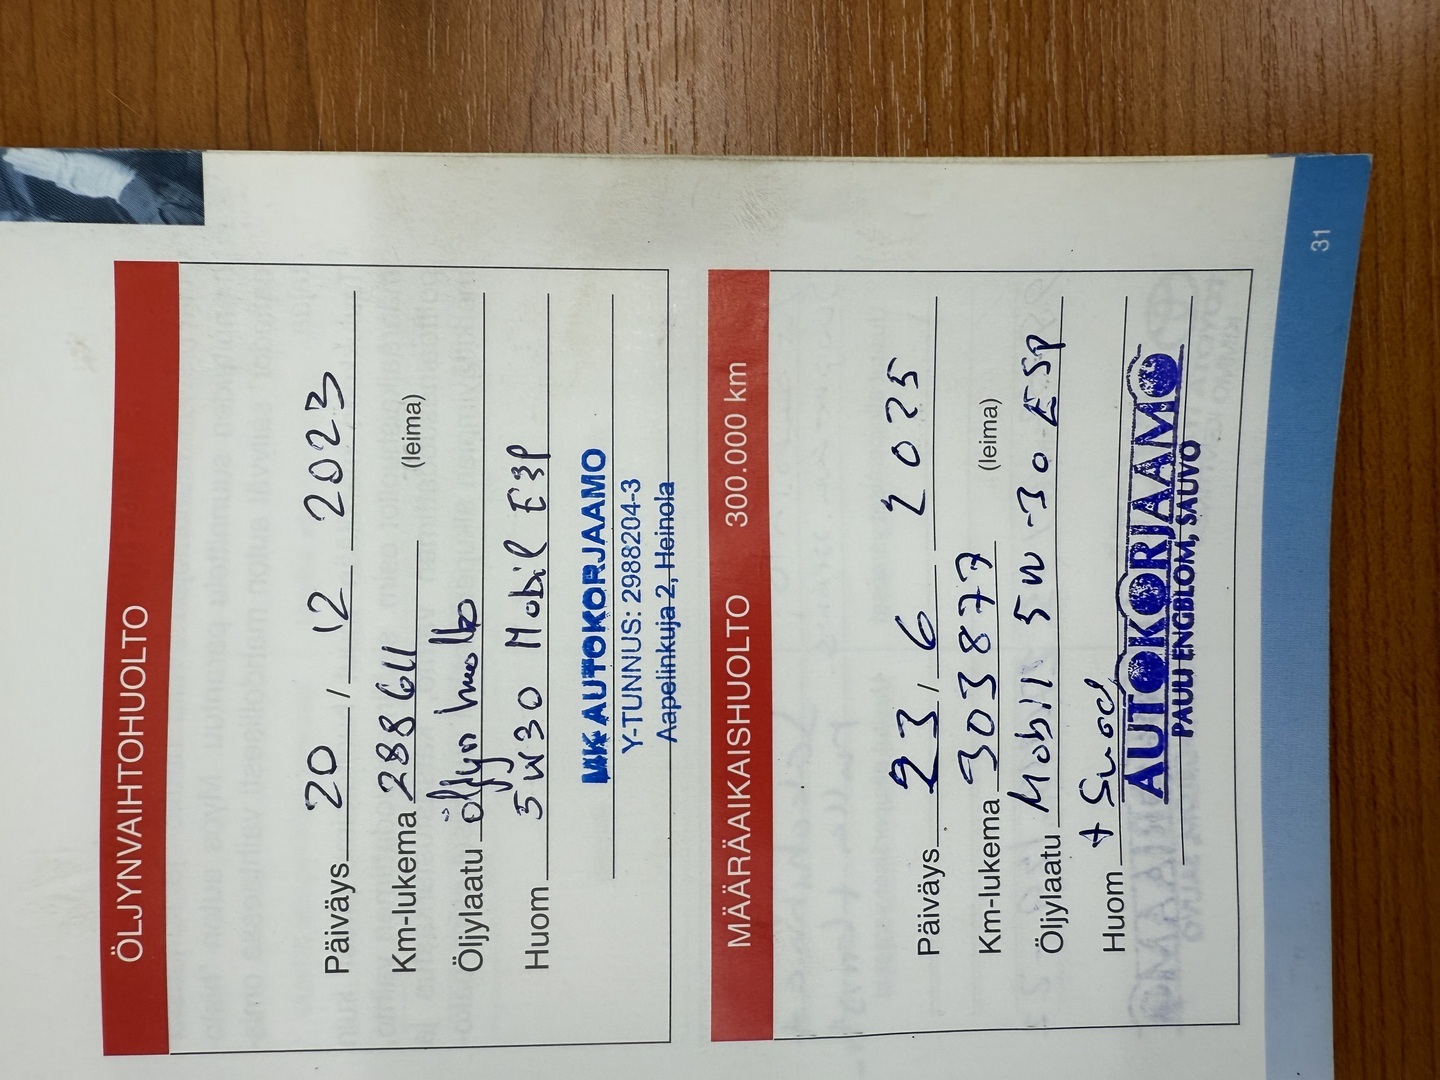 ÖLJYNVAIHTOHUOLTO
Päiväys 20 / 12 2023
Km-lukema 288611 (leima)
Öljylaatu öljyn huolto
Huom 5W30 Mobil ESP
MK AUTOKORJAAMO
Y-TUNNUS: 2988204-3
Aapelinkuja 2, Heinola
MÄÄRÄAIKAISHUOLTO 300.000 km
Päiväys 23 / 6 2025
Km-lukema 303877 (leima)
Öljylaatu Mobil 1 5W-30 ESP
Huom + Suod
AUTOKORJAAMO
PAULI ENGBLOM, SAUVO
31